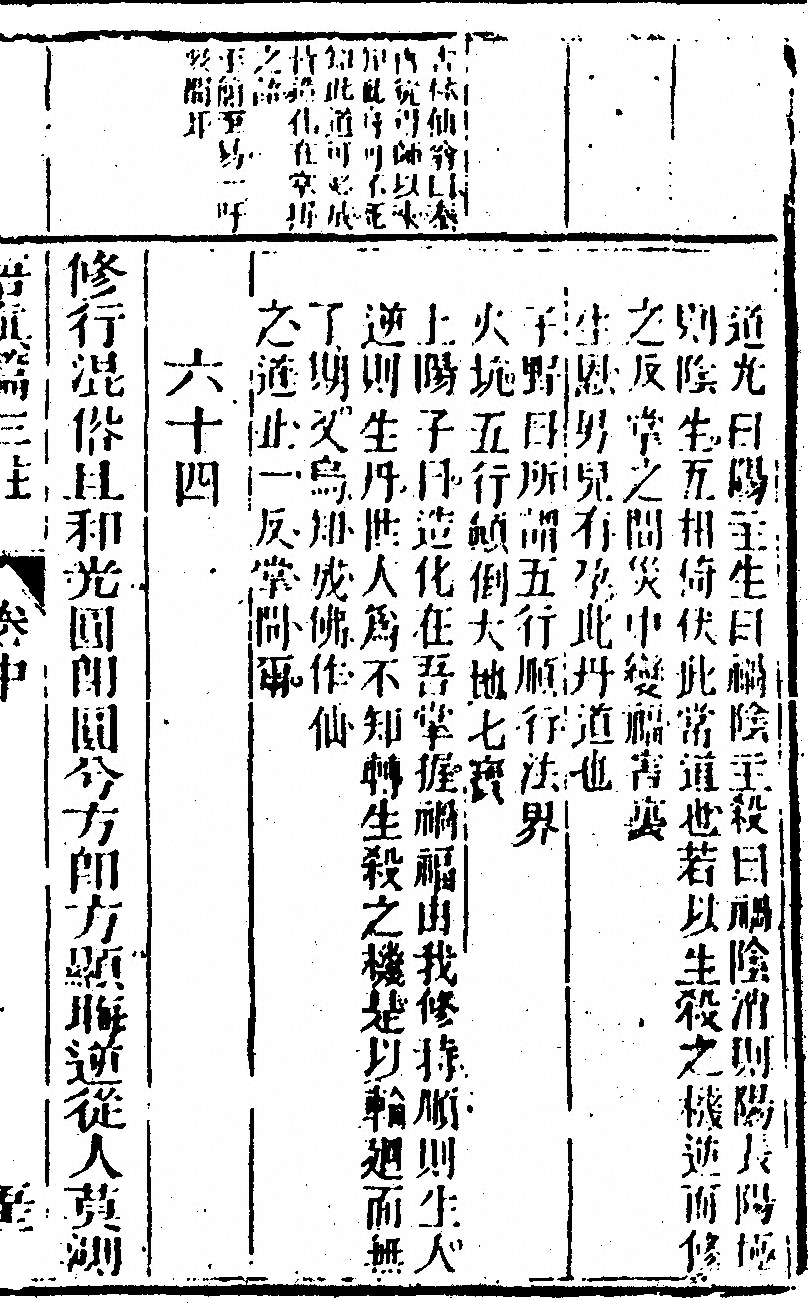 知此道可必成
造化在掌握
之論
至簡至易一吁
道光曰陽主生曰福陰主殺曰禍陰消則陽長陽極
則陰生互相倚伏此常道也若以生殺之機逆而修
之反掌之間災中變福害裏
生恩男兒有孕此丹道也
子野曰所謂五行順行法界
火坑五行顛倒大地七寶
上陽子曰造化在吾掌握禍福由我修持順則生人
逆則生丹世人爲不知轉生殺之機是以輪廻而無
了期又烏知成佛作仙
之道止一反掌間爾
六十四
修行混俗且和光圓卽圓兮方卽方顯晦逆從人莫測
悟眞篇三註 卷中